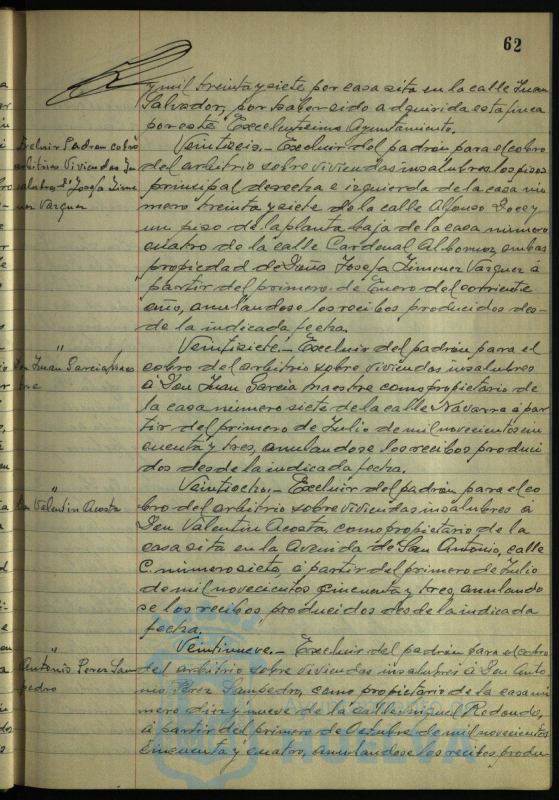 62
y mil treinta y siete por casa sita en la calle Juan
Salvador, por haber sido adquirida esta finca
por este Excelentísimo Ayuntamiento.
Excluir Padron cobro
arbitrios Viviendas In
salubres de Josefa Jime
nez Vazquez
Veintiseis.- Excluir del padrón para el cobro
del arbitrio sobre viviendas insalubres los pisos
principal derecha e izquierda de la casa nú
mero treinta y siete de la calle Alfonso Doce y
un piso de la planta baja de la casa número
cuatro de la calle Cardenal Albornoz, ambas
propiedad de Doña Josefa Jimenez Vazquez á
partir del primero de Enero del corriente
año, anulandose los recibos producidos des-
de la indicada fecha.
"
Don Juan Garcia Maes
tre
Veintisiete.- Excluir del padrón para el
cobro del arbitrio sobre viviendas insalubres
á Don Juan García Maestre como propietario de
la casa número siete de la calle Navarra á par
tir del primero de Julio de mil novecientos cin
cuenta y tres, anulandose los recibos produci
dos desde la indicada fecha.
"
Don Valentin Acosta
Veintiocho.- Excluir del padrón para el co
bro del arbitrio sobre viviendas insalubres á
Don Valentin Acosta, como propietario de la
casa sita en la Avenida de San Antonio, calle
C. número siete, á partir del primero de Julio
de mil novecientos cincuenta y tres, anulando
se los recibos producidos desde la indicada
fecha.
"
Antonio Perez Sam
pedro
Veintinueve.- Excluir del padrón para el cobro
del arbitrio sobre viviendas insalubres á Don Anto
nio Pérez Sampedro, como propietario de la casa nú
mero diez y nueve de la calle Miguel Redondo,
á partir del primero de Octubre de mil novecientos
cincuenta y cuatro, anulandose los recibos produ